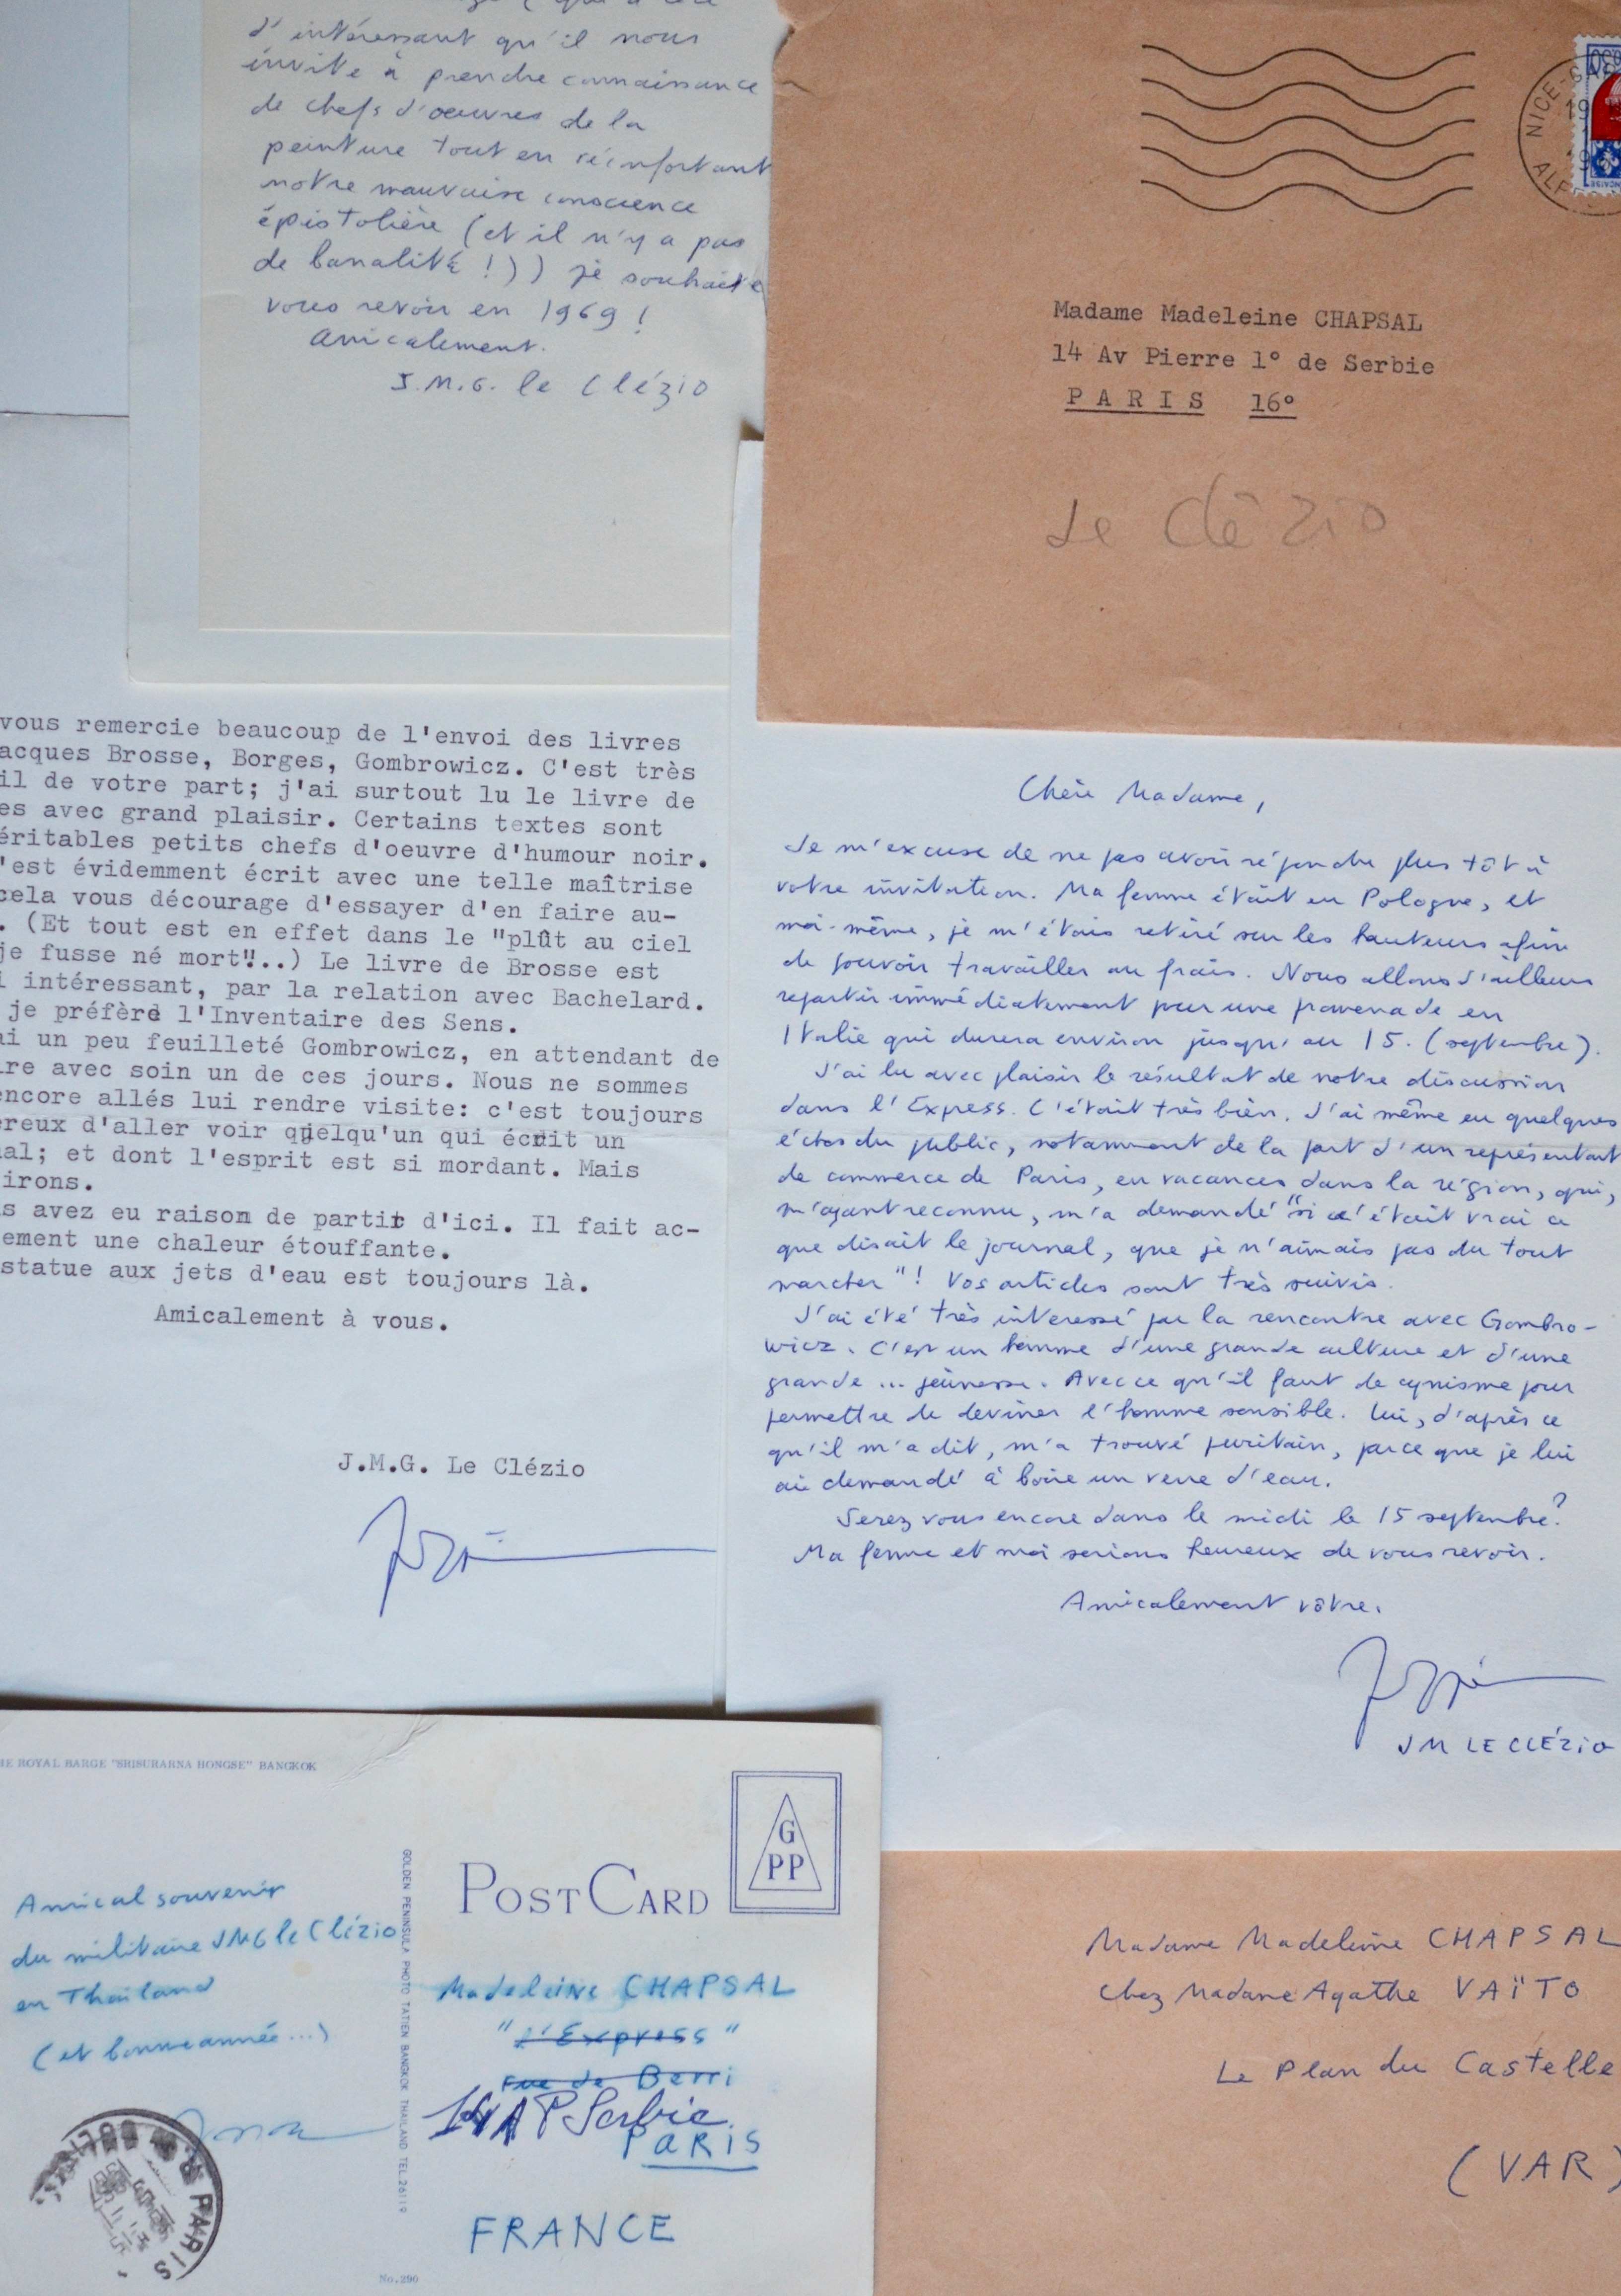 d'intéressant qu'il nous
invite à prendre connaissance
de chefs d'oeuvres de la
peinture tout en réconfortant
notre mauvaise conscience
épistolière (et il n'y a pas
de banalité !)) je souhaite
vous revoir en 1969 !
Amicalement.
J.M.G. le Clézio
NICE-
ALP
Madame Madeleine CHAPSAL
14 Av Pierre 1° de Serbie
PARIS 16°
Le Clézio
vous remercie beaucoup de l'envoi des livres
acques Brosse, Borges, Gombrowicz. C'est très
il de votre part; j'ai surtout lu le livre de
es avec grand plaisir. Certains textes sont
éritables petits chefs d'oeuvre d'humour noir.
'est évidemment écrit avec une telle maîtrise
cela vous décourage d'essayer d'en faire au-
. (Et tout est en effet dans le "plût au ciel
je fusse né mort"...) Le livre de Brosse est
i intéressant, par la relation avec Bachelard.
je préfère l'Inventaire des Sens.
ai un peu feuilleté Gombrowicz, en attendant de
ire avec soin un de ces jours. Nous ne sommes
encore allés lui rendre visite: c'est toujours
ereux d'aller voir quelqu'un qui écrit un
nal; et dont l'esprit est si mordant. Mais
irons.
s avez eu raison de partir d'ici. Il fait ac-
ement une chaleur étouffante.
statue aux jets d'eau est toujours là.
Amicalement à vous.
J.M.G. Le Clézio
Chère Madame,
Je m'excuse de ne pas avoir répondu plus tôt à
votre invitation. Ma femme était en Pologne, et
moi-même, je m'étais retiré sur les hauteurs afin
de pouvoir travailler au frais. Nous allons d'ailleurs
repartir immédiatement pour une promenade en
Italie qui durera environ jusqu'au 15. (septembre).
J'ai lu avec plaisir le résultat de notre discussion
dans l'Express. C'était très bien. J'ai même eu quelques
échos du public, notamment de la part d'un représentant
de commerce de Paris, en vacances dans la région, qui,
m'ayant reconnu, m'a demandé "si c'était vrai ce
que disait le journal, que je n'aimais pas du tout
marcher"! Vos articles sont très suivis.
J'ai été très intéressé par la rencontre avec Gombro-
wicz. C'est un homme d'une grande culture et d'une
grande ... jeunesse. Avec ce qu'il faut de cynisme pour
permettre de deviner l'homme sensible. Lui, d'après ce
qu'il m'a dit, m'a trouvé puritain, parce que je lui
ai demandé à boire un verre d'eau.
Serez vous encore dans le midi le 15 septembre?
Ma femme et moi serions heureux de vous revoir.
Amicalement vôtre.
JM LE CLÉZIO
HE ROYAL BARGE "SRISURARNA HONGSE" BANGKOK
POSTCARD
G
PP
GOLDEN PENINSULA PHOTO TATIEN BANGKOK THAILAND TEL 26119
Amical souvenir
du militaire JMG le Clézio
en Thaïland
(et bonne année...)
Madeleine CHAPSAL
"l'Express"
rue de Berri
14 A P Serbie
PARIS
FRANCE
PARIS
No.290
Madame Madeleine CHAPSAL
chez Madame Agathe VAÏTO
Le Plan du Castelle
(VAR)